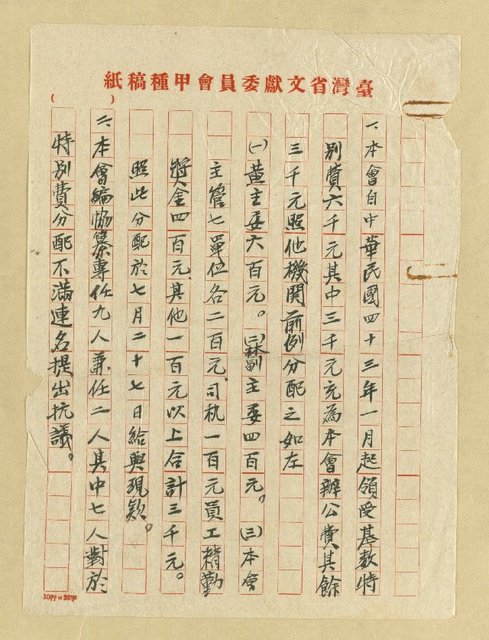 臺灣省文獻委員會甲種稿紙
( )
一、本會自中華民國四十三年一月起領受基数特
別費六千元其中三千元充為本會辦公費其餘
三千元照他機関前例分配之如左
(一)黃主委六百元。(二)林副主委四百元。(三)本會
主管七單位各二百元、司机一百元員工精勤
獎金四百元、其他一百元以上合計三千元。
照此分配於七月二十七日給與現款。
二、本會編協纂專任九人兼任二人其中七人對於
特別費分配不滿連名提出抗議。
10行×20字